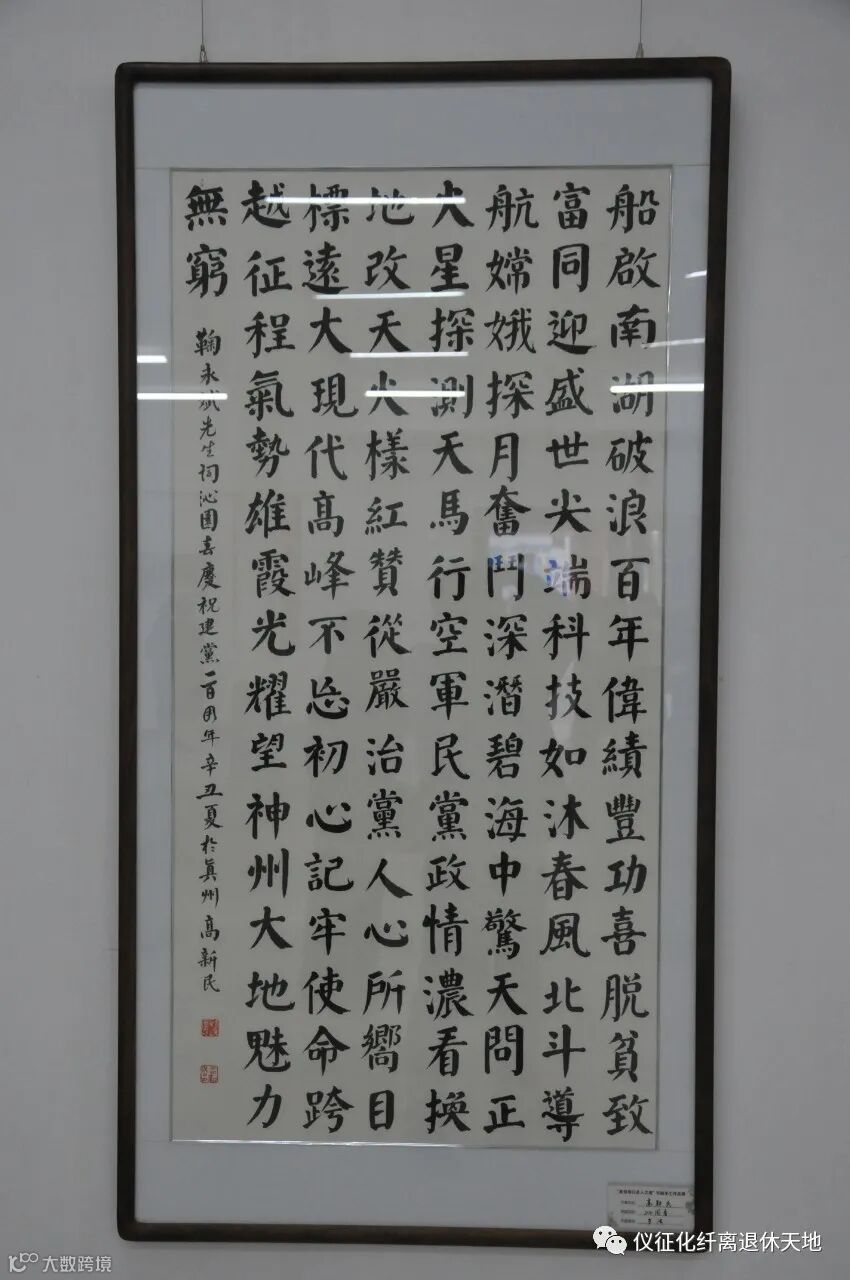 船啟南湖破浪百年偉績豐功喜脱貧致
富同迎盛世尖端科技如沐春風北斗導
航嫦娥探月奮鬥深潛碧海中驚天問正
火星探測天馬行空軍民黨政情濃看换
地改天火樣紅贊從嚴治黨人心所嚮目
標遠大現代高峰不忘初心記牢使命跨
越征程氣勢雄霞光耀望神州大地魅力
無窮
鞠永斌先生祠沁園喜慶祝建黨一百周年辛丑夏於真州高新民
仪征化纤离退休天地
大数跨境